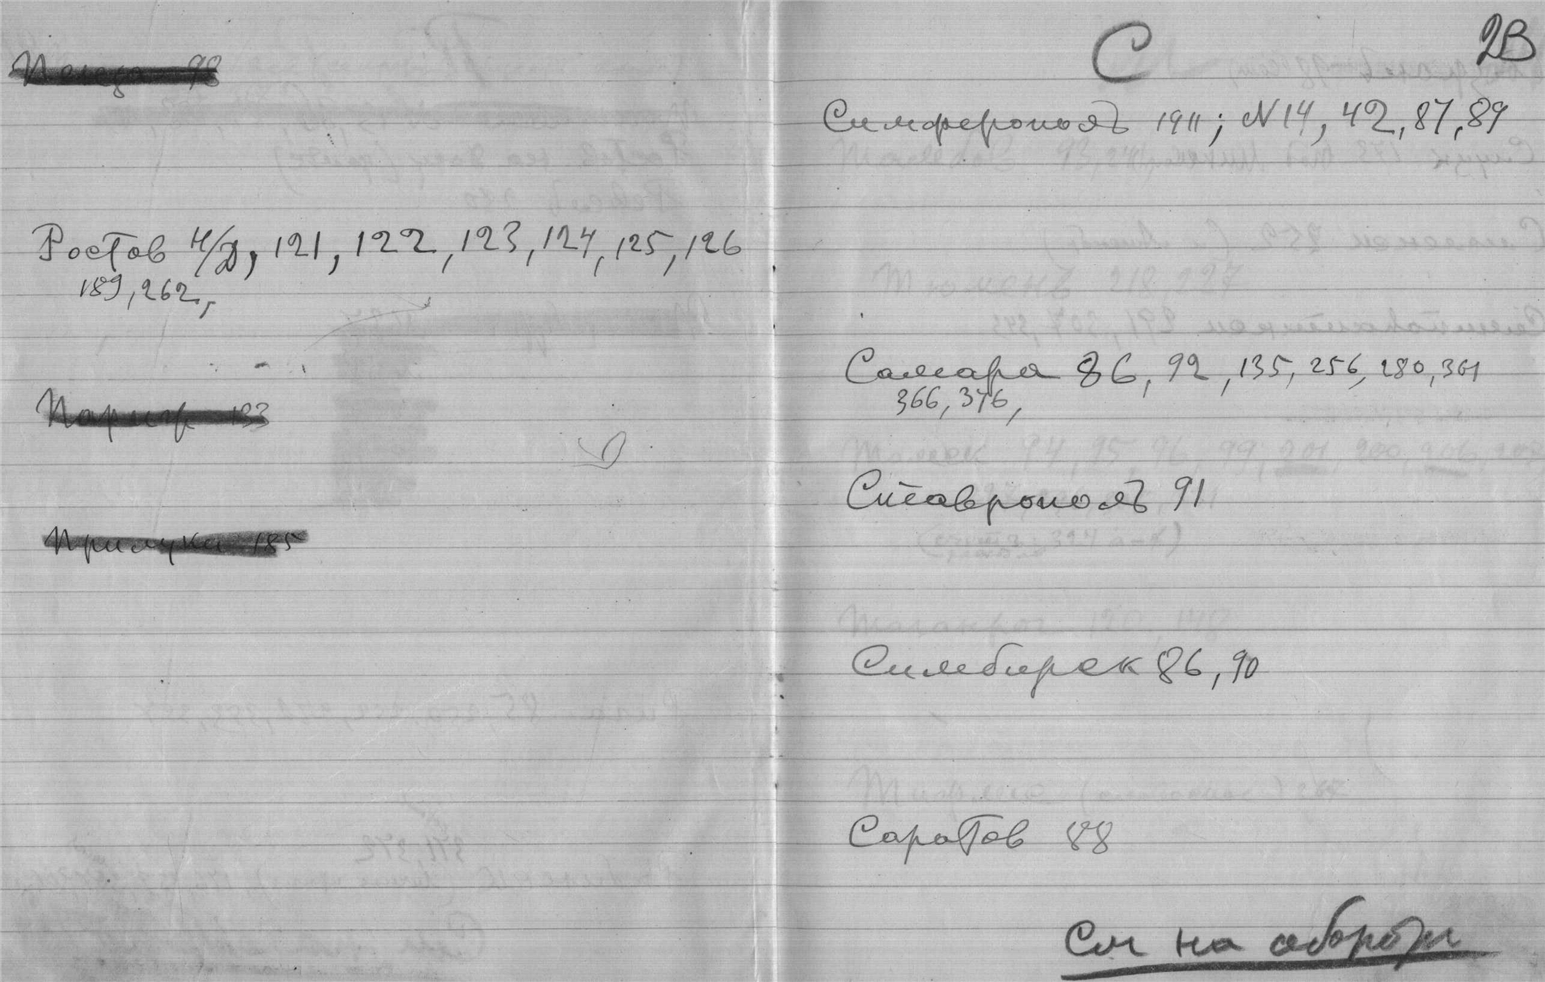 Ростов н/Д, 121, 122, 123, 124, 125, 126
189, 262,
Париж 193
Прилуки 185
С
2В
Симферополь 1911; N14, 42, 87, 89
Самара 86, 92, 135, 256, 280, 361
366, 376,
Ставрополь 91
Симбирск 86, 90
Саратов 88
См на обороти